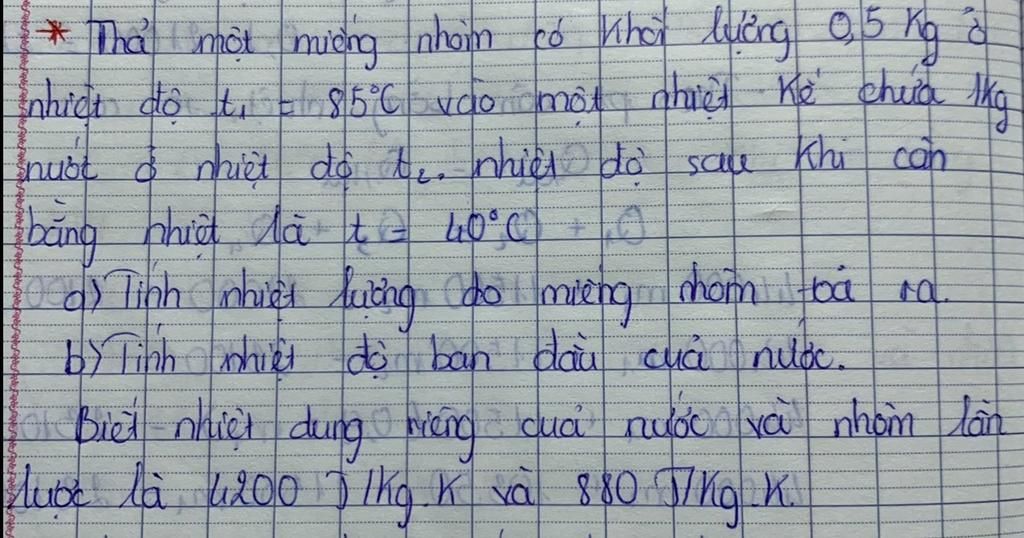 * Thả một miếng nhôm có khối lượng 0,5 kg ở
nhiệt độ t₁ = 85°C vào một nhiệt kế chứa 1kg
nước ở nhiệt độ t₂. nhiệt độ sau khi cân
bằng nhiệt là t = 40°C
a) Tính nhiệt lượng do miếng nhôm toả ra.
b) Tính nhiệt độ ban đầu của nước.
Biết nhiệt dung riêng của nước và nhôm lần
lược là 4200 J/kg.K và 880 J/kg.K.